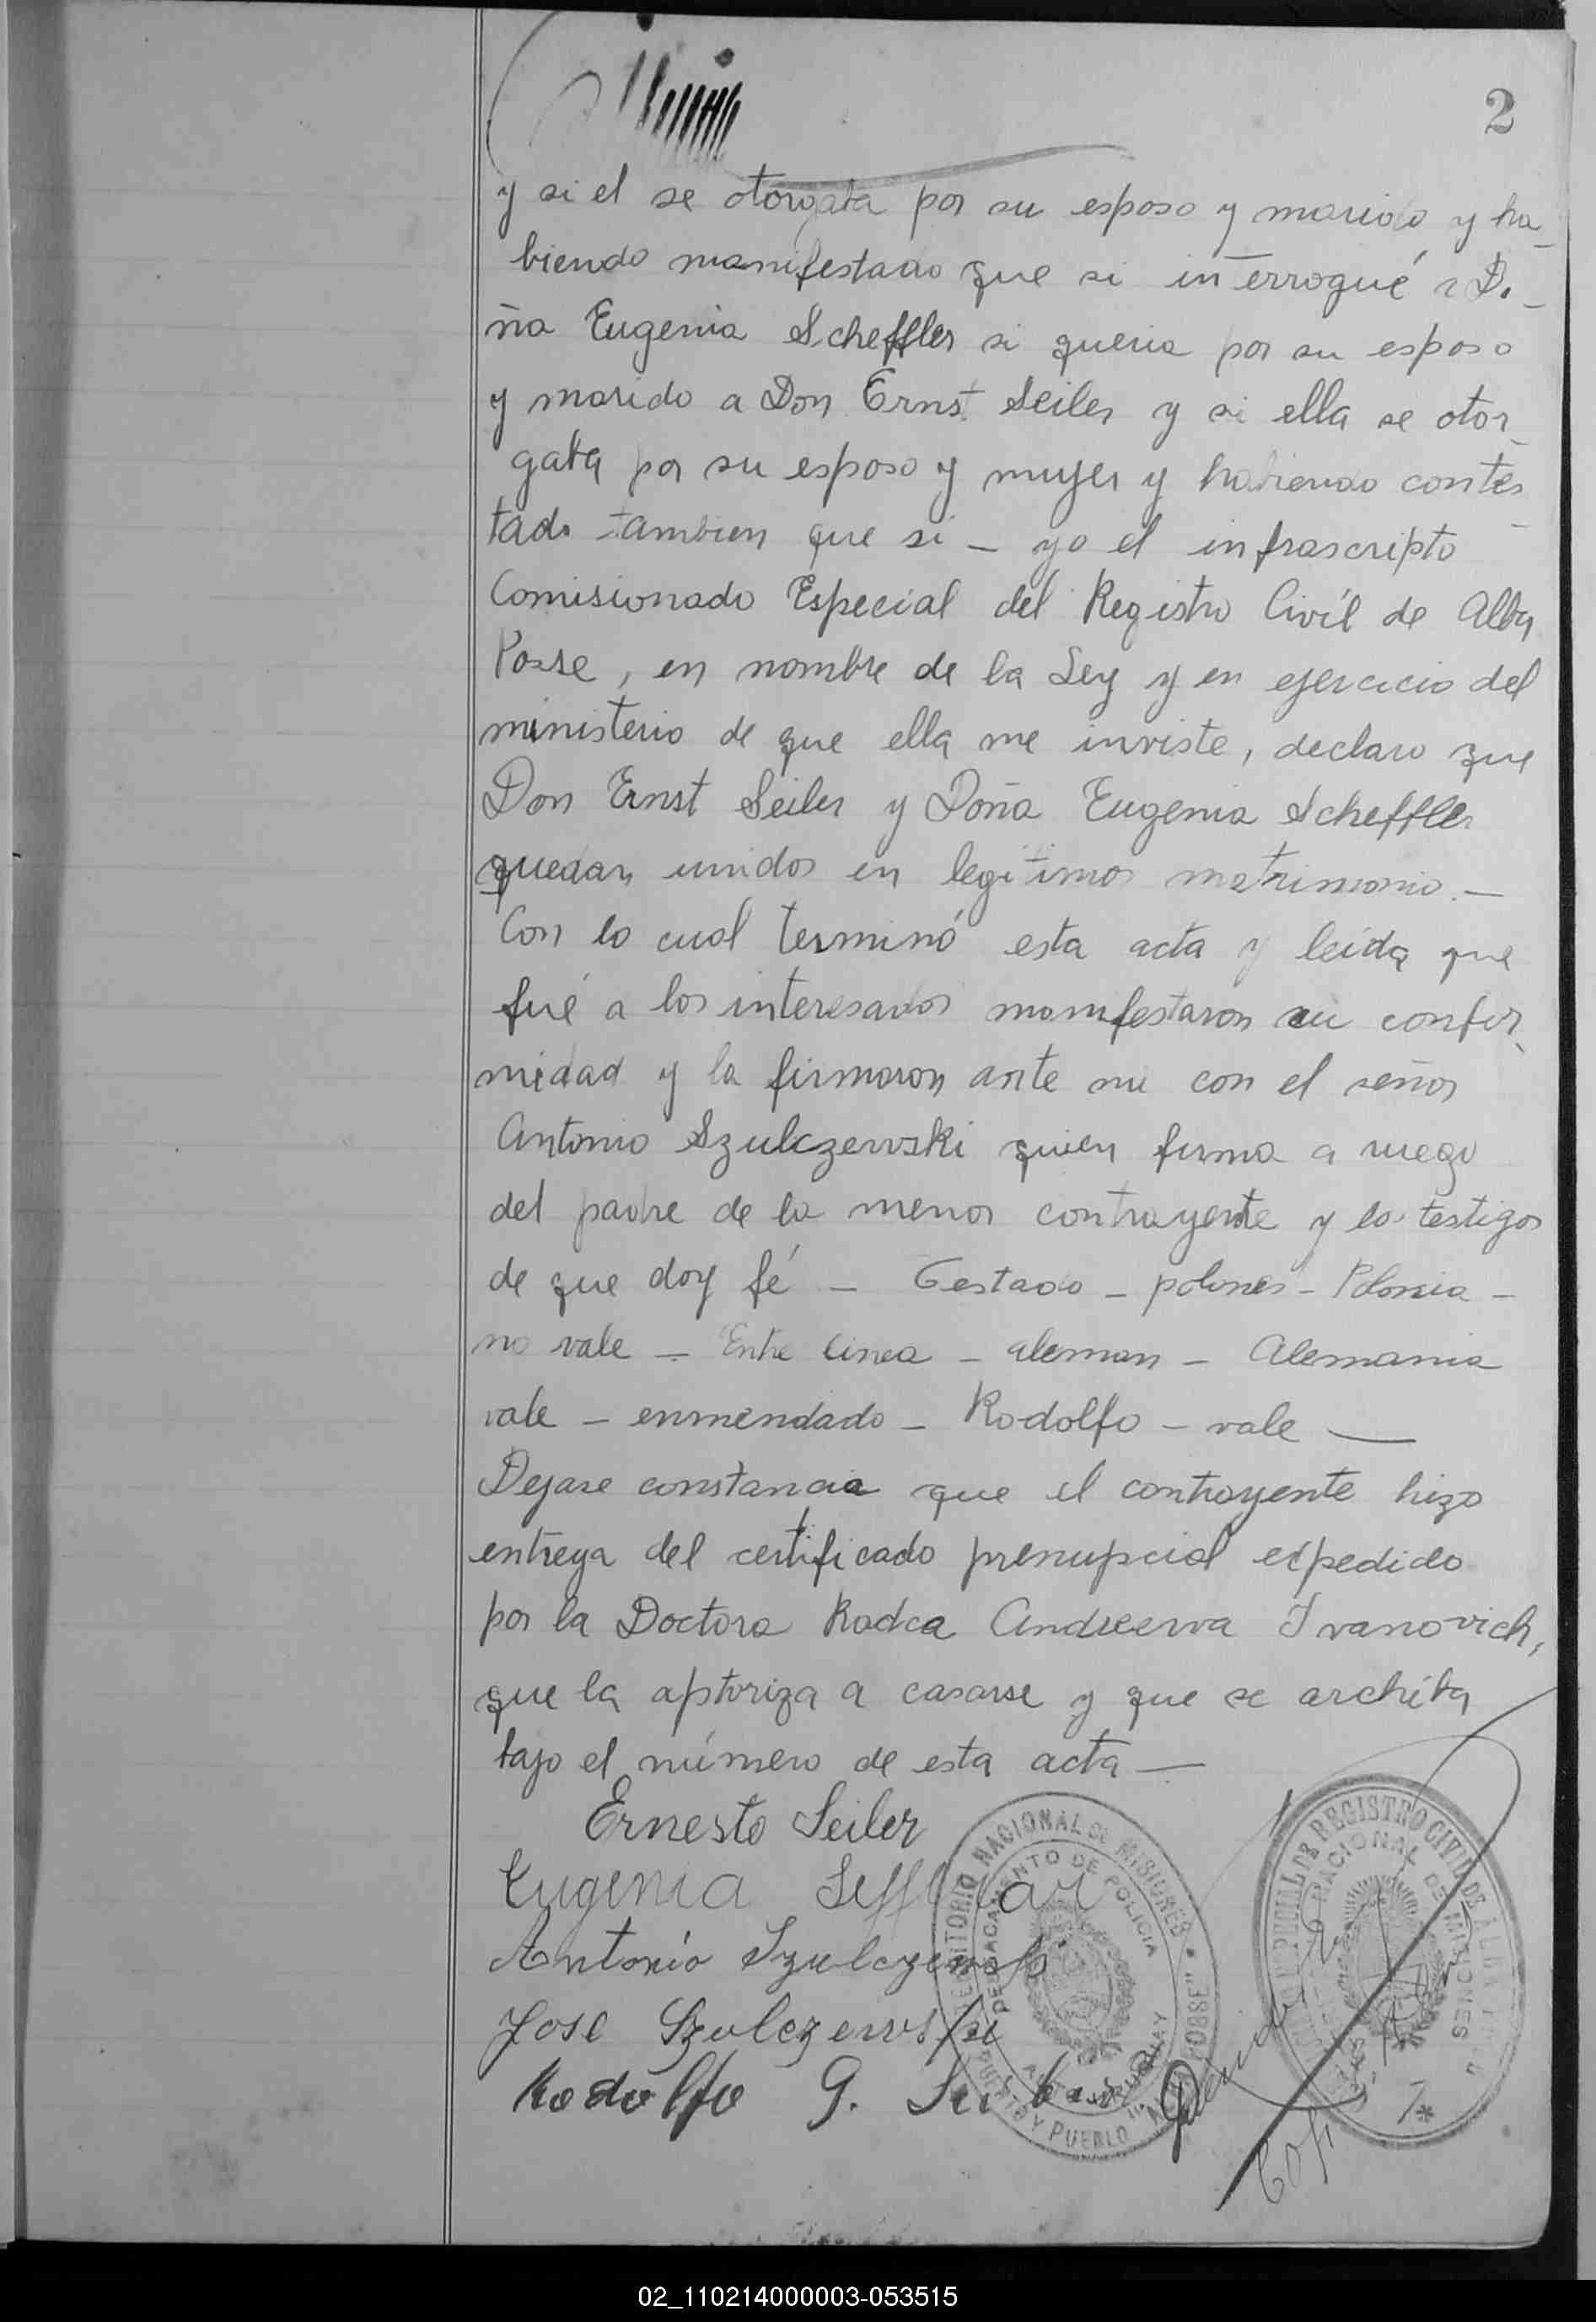 2
y si el se otorgaba por su esposo y marido y ha-
biendo manifestado que si interrogué a Do-
ña Eugenia Scheffler si queria por su esposo
y marido a Don Ernst Seiler y si ella se otor-
gaba por su esposo y mujer y habiendo contes-
tado tambien que si - yo el infrascripto
Comisionado Especial del Registro Civíl de Alba
Posse, en nombre de la Ley y en ejercicio del
ministerio de que ella me inviste, declaro que
Don Ernst Seiler y Doña Eugenia Scheffler
quedan unidos en legitimo matrimonio. -
Con lo cual terminó esta acta y leida que
fué a los interesados manifestaron su confor-
midad y la firmaron ante mi con el señor
Antonio Szulczewski quien firma a ruego
del padre de la menor contrayente y los testigos
de que doy fé - Testado - polones - Polonia -
no vale - Entre linea - aleman - Alemania
vale - enmendado - Rodolfo - vale —
Dejase constancia que el contrayente hizo
entrega del certificado prenupcial expedido
por la Doctora Radca Andreewa Ivanovich,
que la aptoriza a casarse y que se archiba
bajo el número de esta acta —
Ernesto Seiler
Eugenia Seffler
Antonio Szulczewski
Jose Szulczewski
Rodolfo G.
TERRITORIO NACIONAL DE MISIONES
DESTACAMENTO DE POLICIA
ALTO URUGUAY
PUERTO Y PUEBLO "ALBA POSSE"
REGISTRO CIVIL DE ALBA POSSE
NACIONAL DE MISIONES
02_110214000003-053515